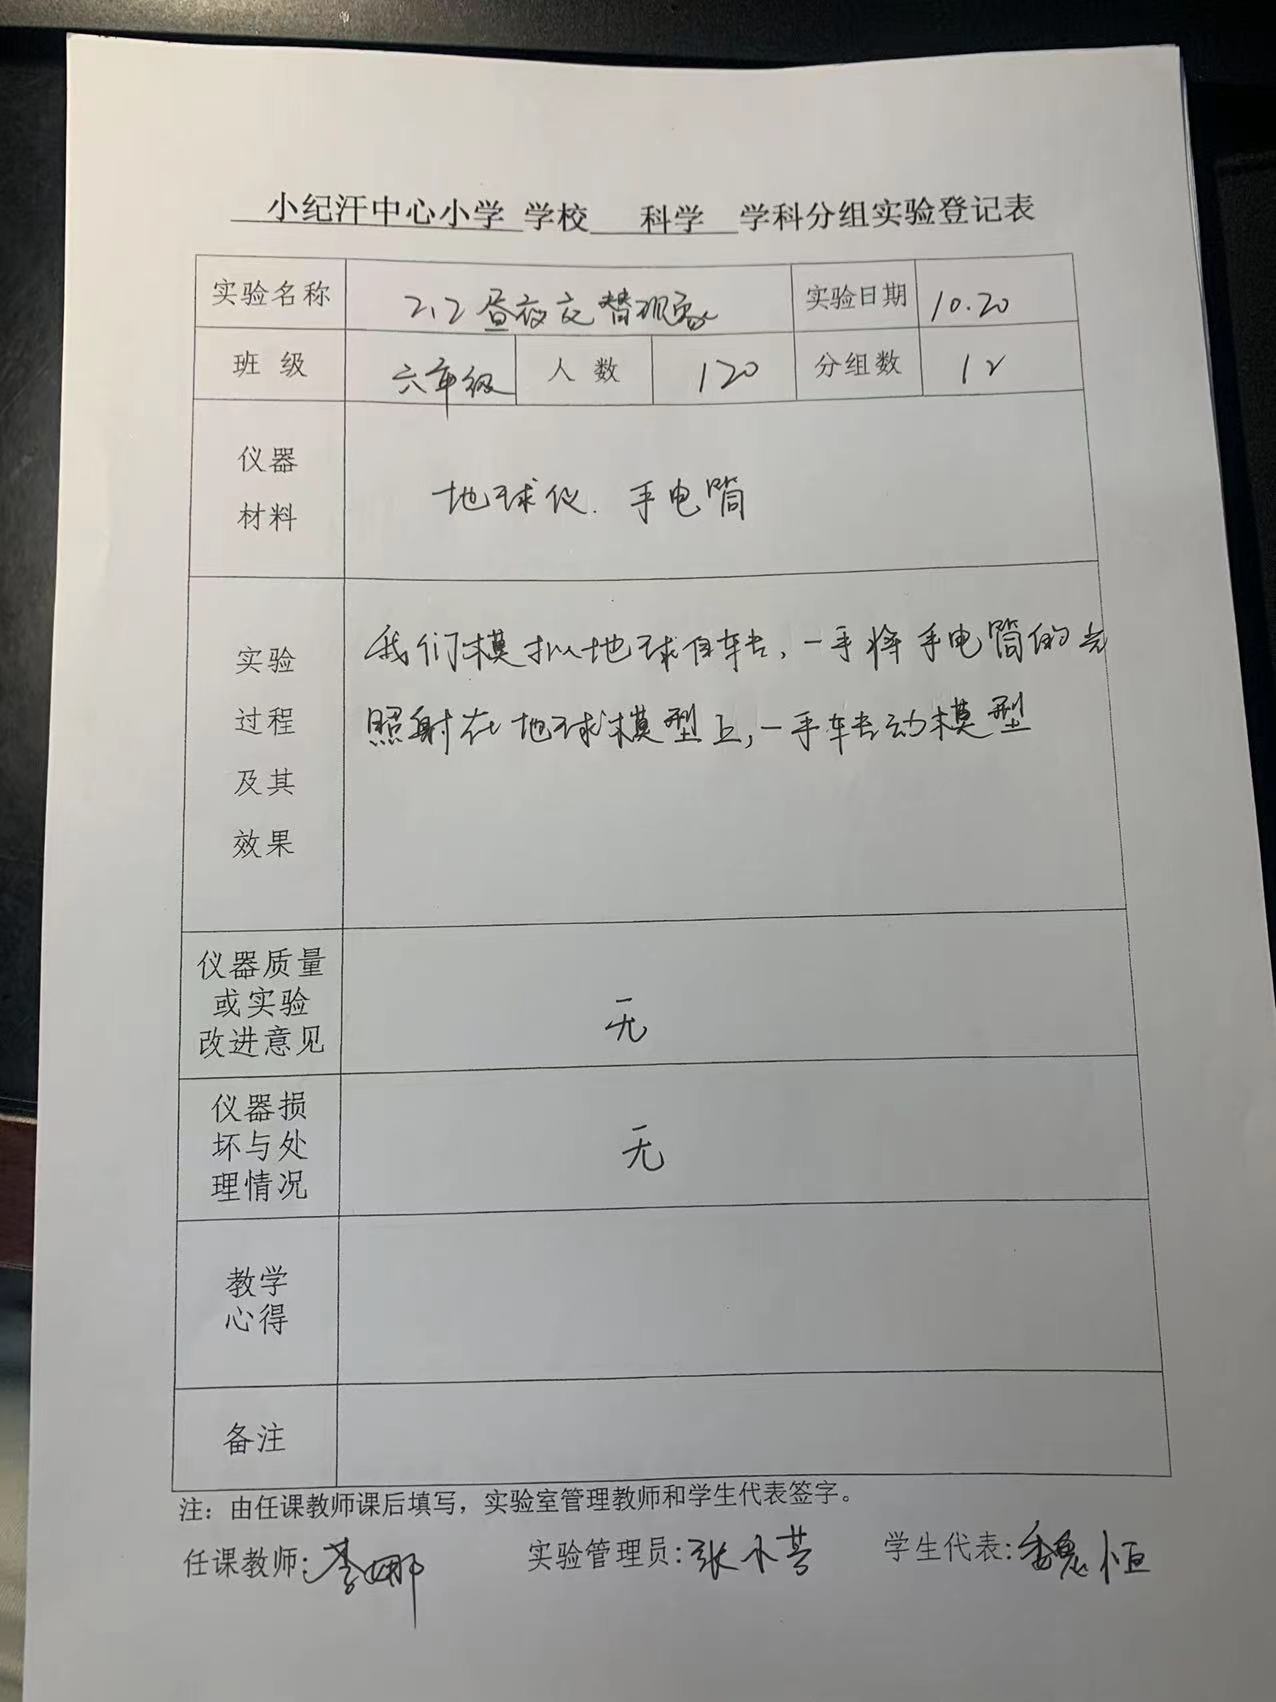 小纪汗中心小学 学校 科学 学科分组实验登记表
实验名称 2.2昼夜交替现象 实验日期 10.20
班 级 六年级 人 数 120 分组数 12
仪器
材料
地球仪. 手电筒
实验
过程
及其
效果
我们模拟地球自转,一手将手电筒的光
照射在地球模型上,一手转动模型
仪器质量
或实验
改进意见
无
仪器损
坏与处
理情况
无
教学
心得
备注
注：由任课教师课后填写，实验室管理教师和学生代表签字。
任课教师: 李娜 实验管理员: 张 学生代表: 魏恒